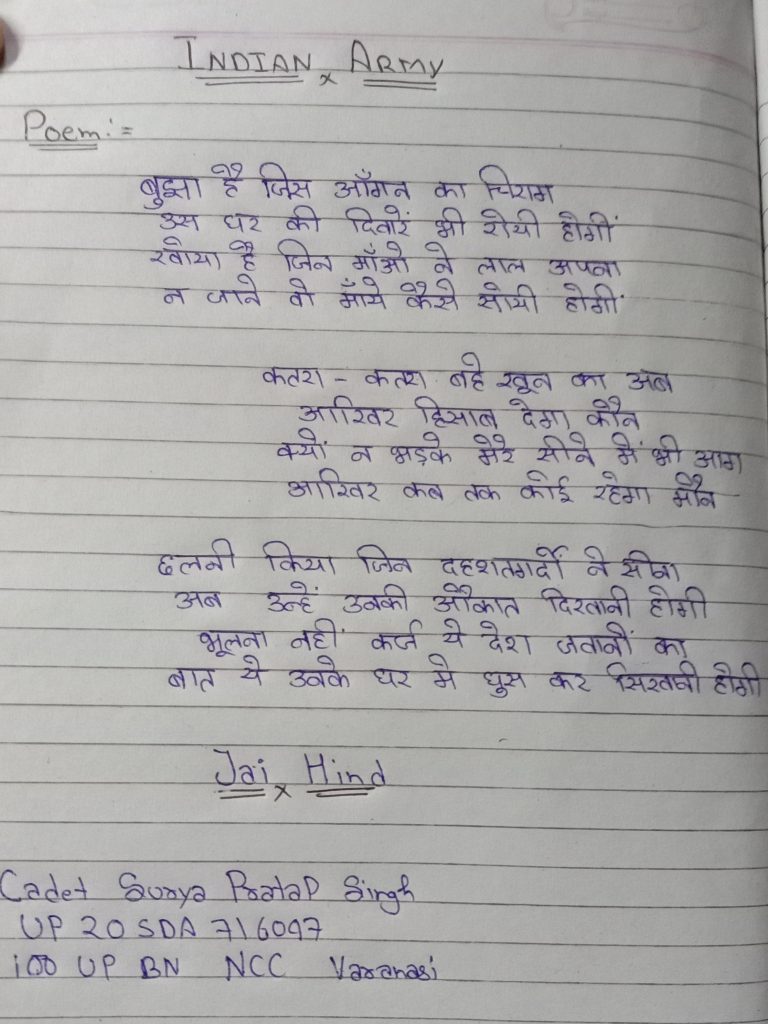 INDIAN x ARMY
Poem:=
बुझा है जिस आँगन का चिराग
उस घर की दिवारें भी रोयी होगीं
खोया है जिन माँओ ने लाल अपना
न जाने वो माँये कैसे सोयी होगीं
कतरा - कतरा बहे खून का अब
आखिर हिसाब देगा कौन
क्यों न भड़के मेरे सीने में भी आग
आखिर कब तक कोई रहेगा मौन
छलनी किया जिन दहशतगर्दों ने सीना
अब उन्हें उनकी औकात दिखानी होगी
भूलना नहीं कर्ज ये देश जवानों का
बात ये उनके घर मे घुस कर सिखानी होगी
Jai x Hind
Cadet Surya Pratap Singh
UP 20 SDA 716097
100 UP BN NCC Varanasi